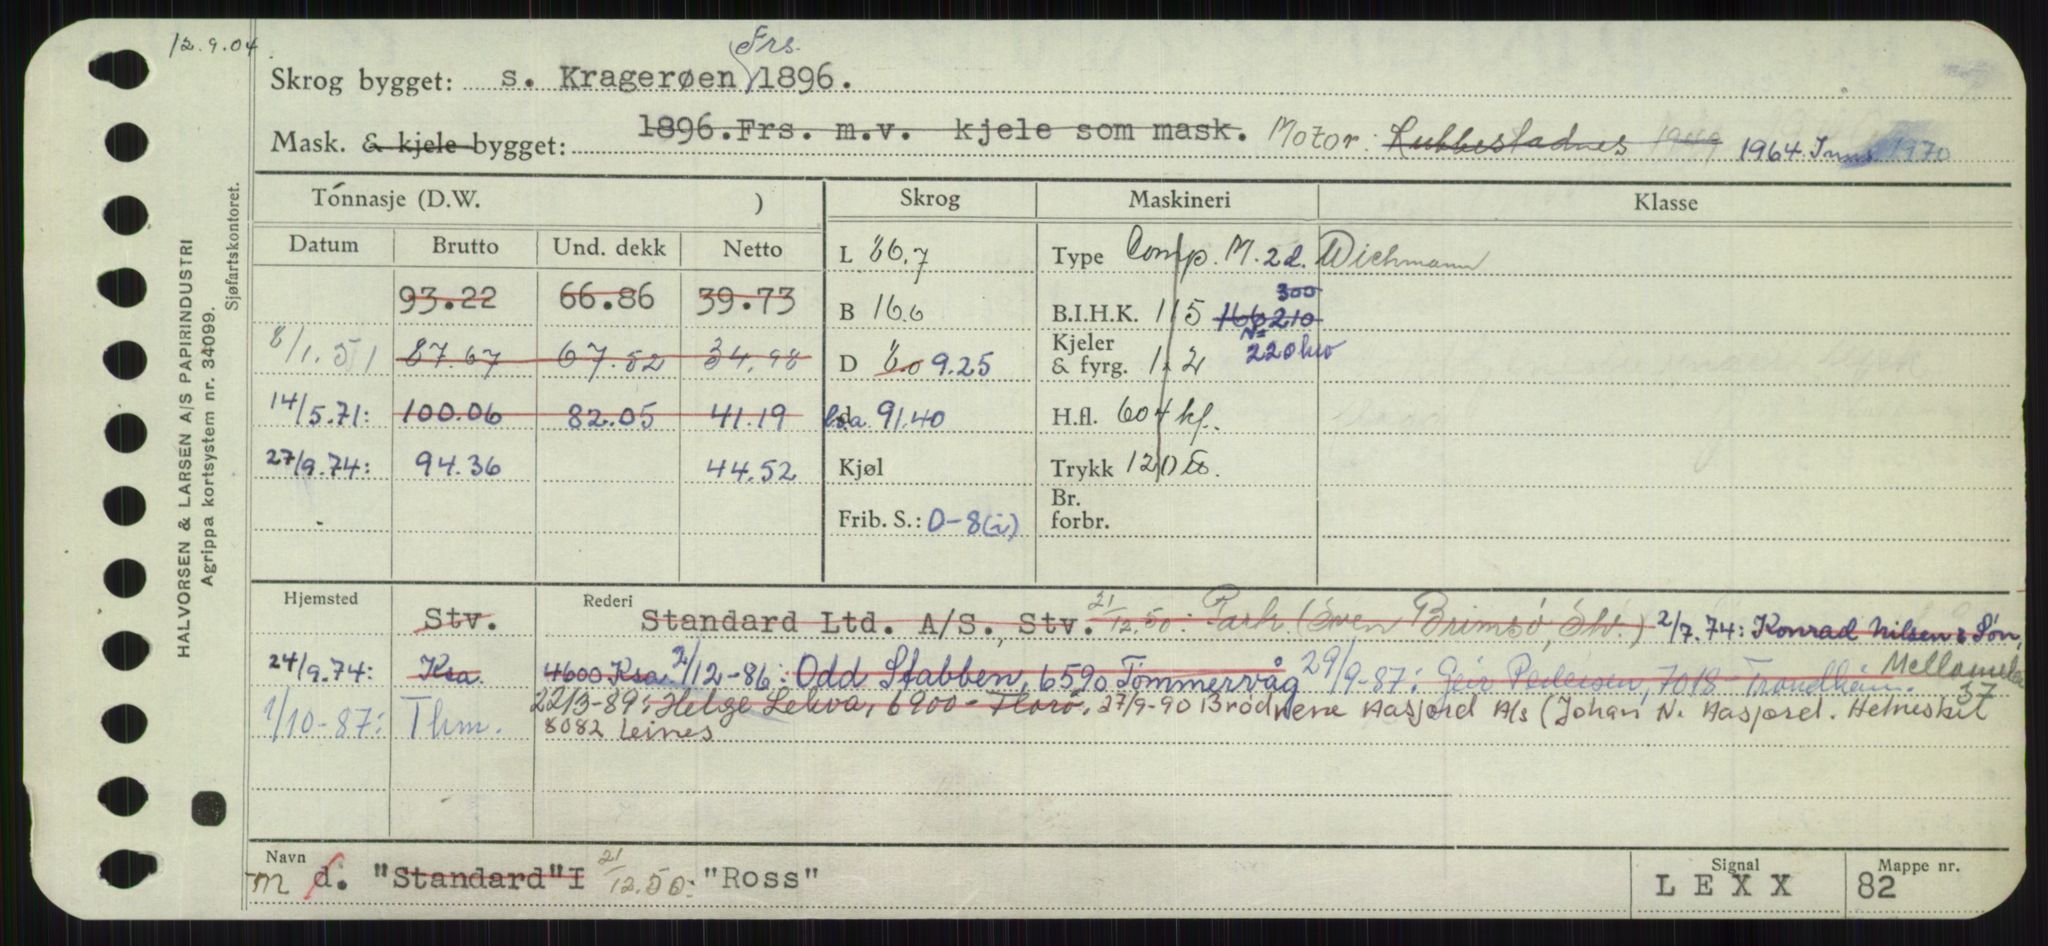 12.9.04
Frs.
Skrog bygget: s. Kragerøen 1896.
Mask. & kjele bygget: 1896. Frs. m.v. kjele som mask. Motor: 1949 1964. 1970
Tonnasje (D.W. ) Skrog Maskineri Klasse
Datum Brutto Und. dekk Netto L 86.7 Type Comp. M. 2 d. Wichmann
93.22 66.86 39.73 B 16.6 B.I.H.K. 115 166 210 300
8/1.51 87.67 67.52 34.98 D 8.0 9.25 Kjeler & fyrg. 1. 2 N= 220 kw
14/5.71: 100.06 82.05 41.19 d l.a. 91.40 H.fl. 604 kf.
27/9.74: 94.36 44.52 Kjøl Trykk 120 lb.
Frib. S.: D-8(i) Br. forbr.
Hjemsted Stv. Rederi Standard Ltd. A/S., Stv. 21/12.50: Park (Sven Brimsö, Stv.) 2/7.74: Konrad Nilsen & Søn,
24/9.74: Ksa. 4600 Ksa /12-86: Odd Stabben, 6590 Tømmervåg 29/9-87: Geir Pedersen, 7018 - Trondheim. 37
1/10-87: Thm. 22/3-89: Helge Lekva, 6900 - Florø, 27/9-90 Brødrene Aasjord A/s (Johan N. Aasjord. Helnessket
8082 Leines
Navn m d. "Standard" I 21/12.50: "Ross" Signal L E X X Mappe nr. 82
HALVORSEN & LARSEN A/S PAPIRINDUSTRI
Agrippa kortsystem nr. 34099.
Sjøfartskontoret.